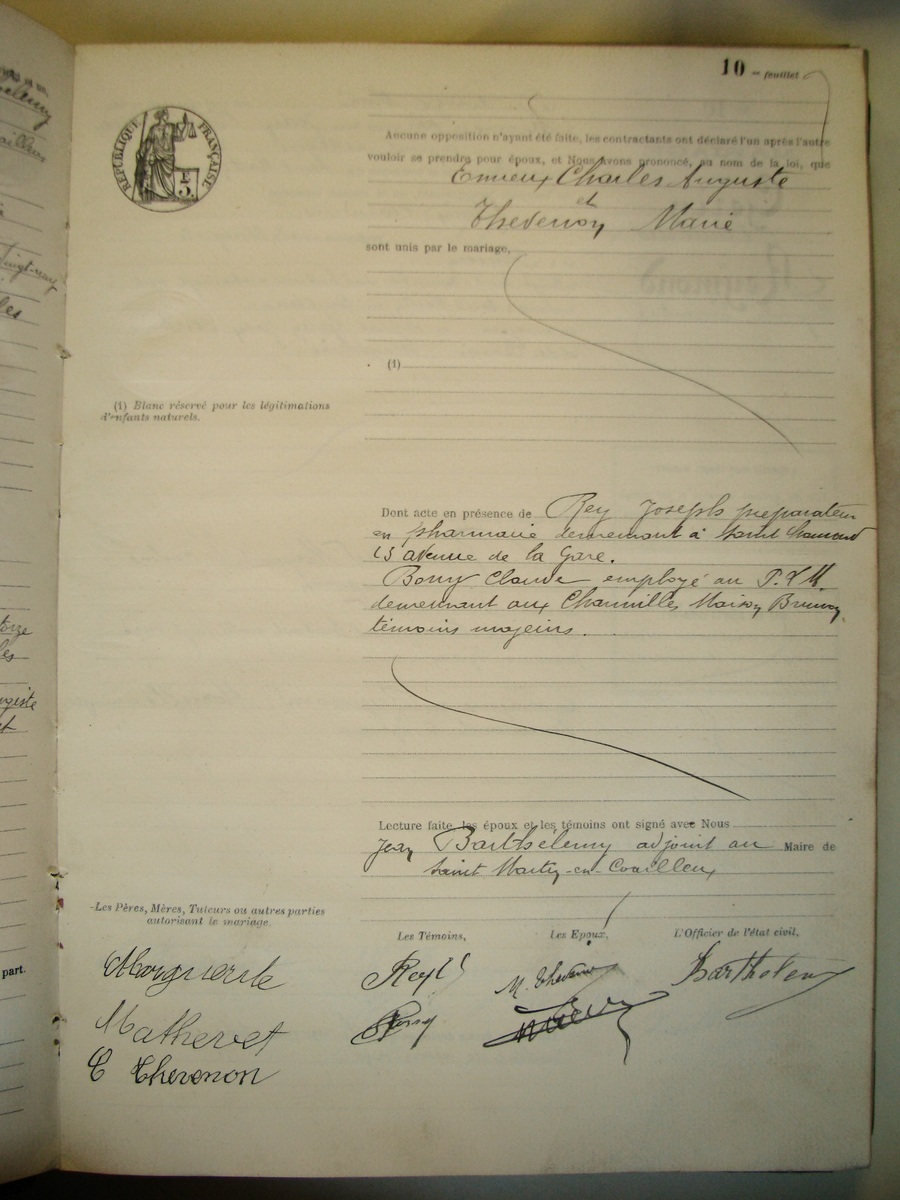 10 - feuillet
RÉPUBLIQUE FRANÇAISE
Aucune opposition n'ayant été faite, les contractants ont déclaré l'un après l'autre
vouloir se prendre pour époux, et Nous avons prononcé, au nom de la loi, que
Charles Auguste
et
Thevenon Marie
sont unis par le mariage,
(1)
(1) Blanc réservé pour les légitimations
d'enfants naturels.
Dont acte en présence de Rey Joseph preparateur
en pharmacie demeurant à Saint Chamond
15 avenue de la Gare.
Bony Claude employé au P.L.M.
demeurant aux Charmilles Maison
témoins majeurs.
Lecture faite, les époux et les témoins ont signé avec Nous
Jean Barthelemy adjoint au Maire de
Saint Martin-en-Coailleux
-Les Pères, Mères, Tuteurs ou autres parties
autorisant le mariage.
Les Témoins,
Les Epoux,
L'Officier de l'état civil,
Marguerite
Mathevet
C Thevenon
Rey
Bony
M. Thevenon
Barthelemy
part.